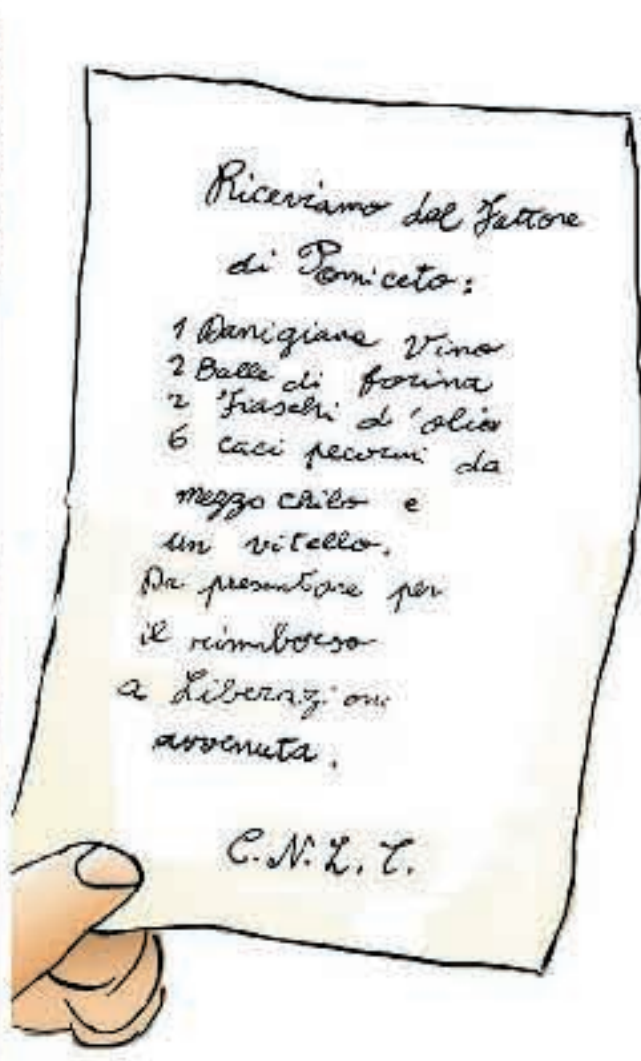 Riceviamo dal Fattore
di Pomiceto:
1 Damigiana Vino
2 Balle di farina
2 Fiaschi d'olio
6 caci pecorini da
mezzo chilo e
un vitello.
Da presentare per
il rimborso
a Liberazione
avvenuta.
C.N.L.T.